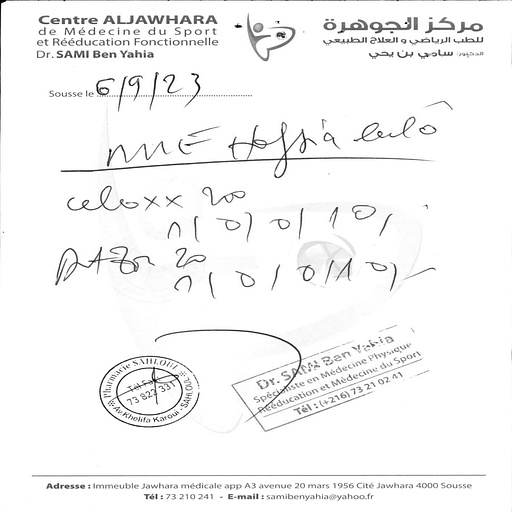 Centre ALJAWHARA
de Médecine du Sport
et Rééducation Fonctionnelle
Dr. SAMI Ben Yahia
مركز الجوهرة
للطب الرياضي و العلاج الطبيعي
الدكتور: سامي بن يحي
Sousse le 6/9/23
MME
celoxx 200
1/0/0/10/
20
1/0/0/10/
Pharmacie SAHLOUL
Tél Fax
73 822 331
Av Khelifa Karoui - SAHLOUL
Dr. SAMI Ben Yahia
Spécialiste en Médecine Physique
Rééducation et Médecine du Sport
Tél : (+216) 73 21 02 41
Adresse : Immeuble Jawhara médicale app A3 avenue 20 mars 1956 Cité Jawhara 4000 Sousse
Tél : 73 210 241 - E-mail : samibenyahia@yahoo.fr